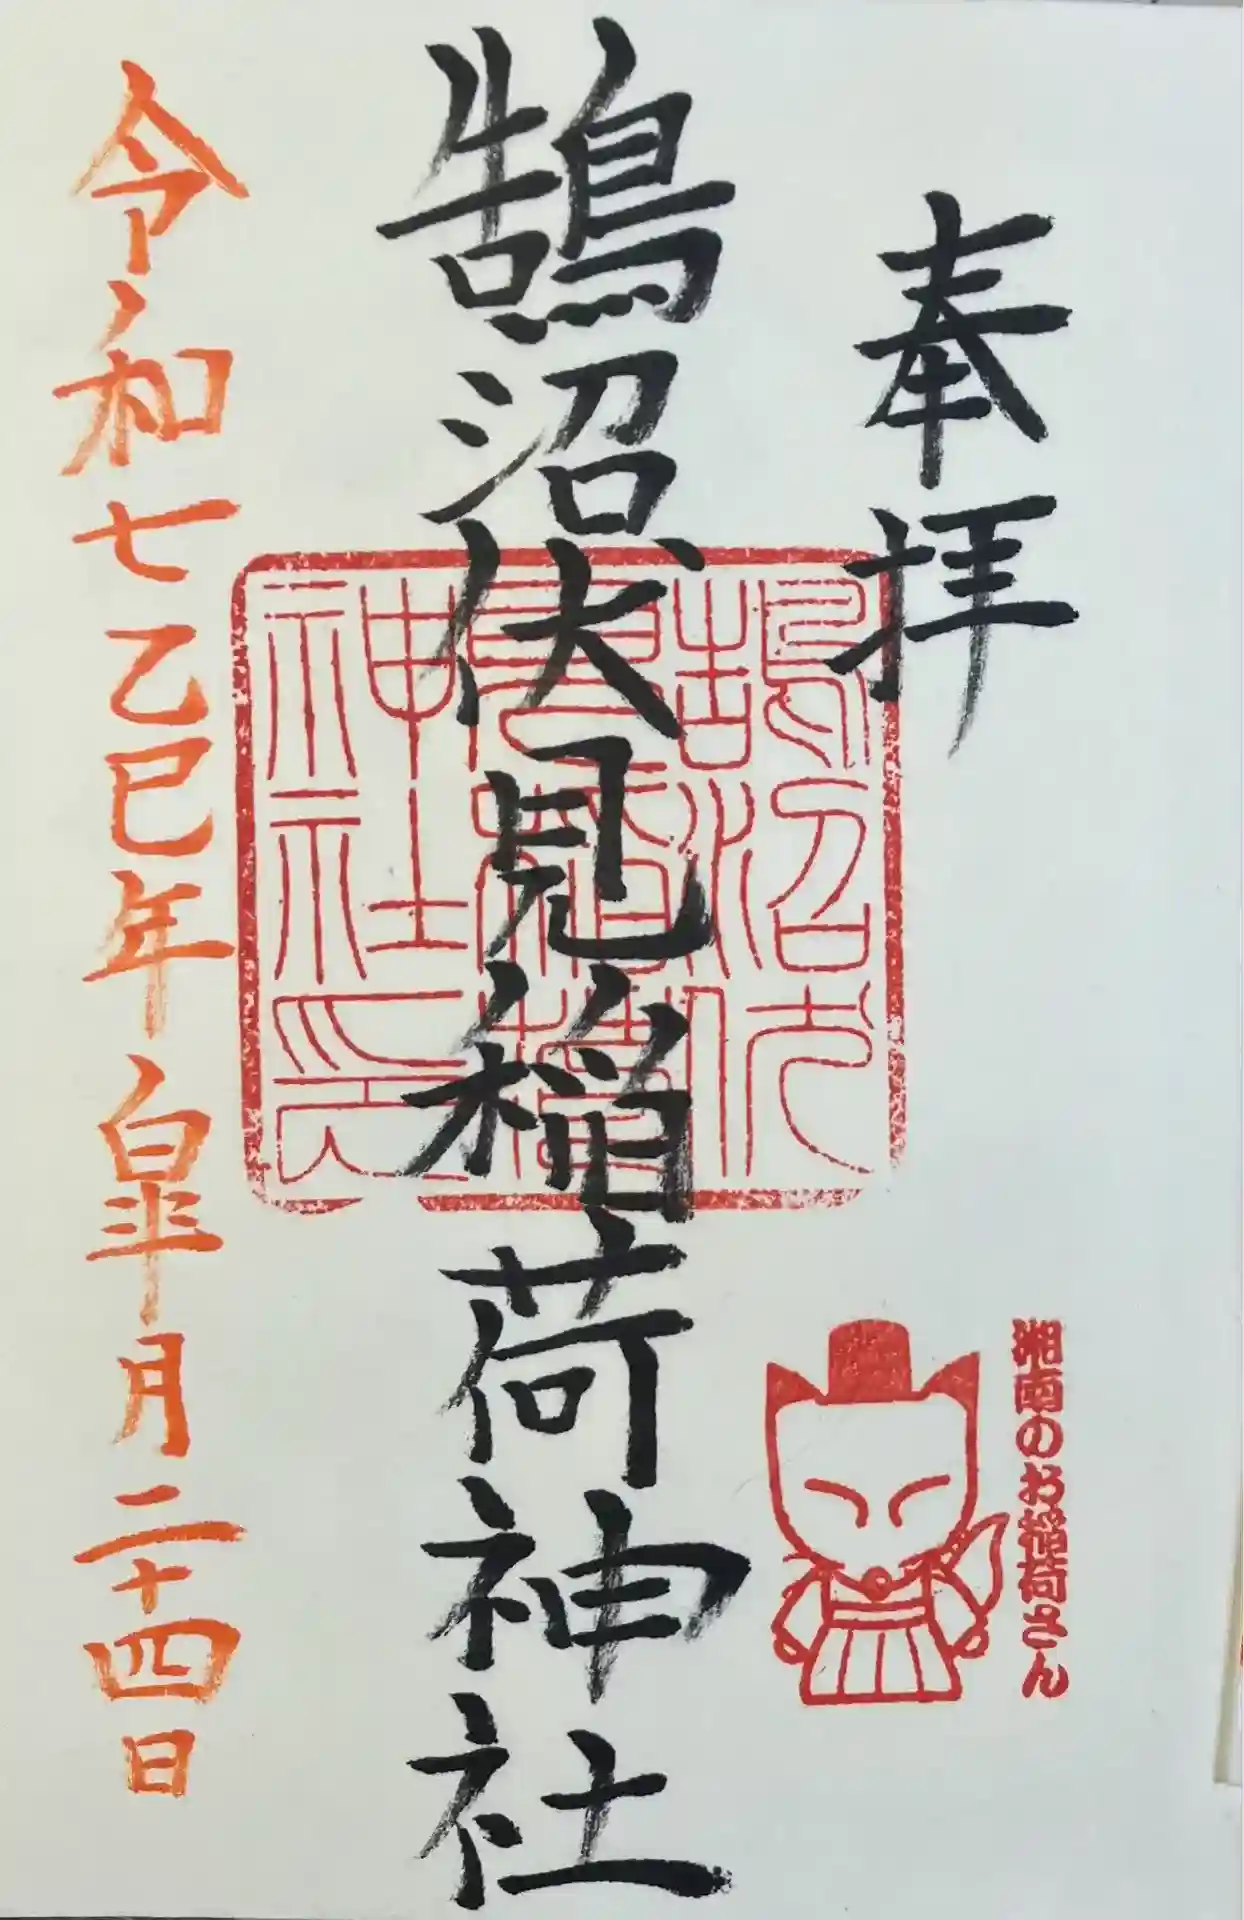 奉拝
湘南のお稲荷さん
鵠沼伏見稲荷神社
鵠沼伏
見稲荷
神社印
令和七乙巳年皐月二十四日